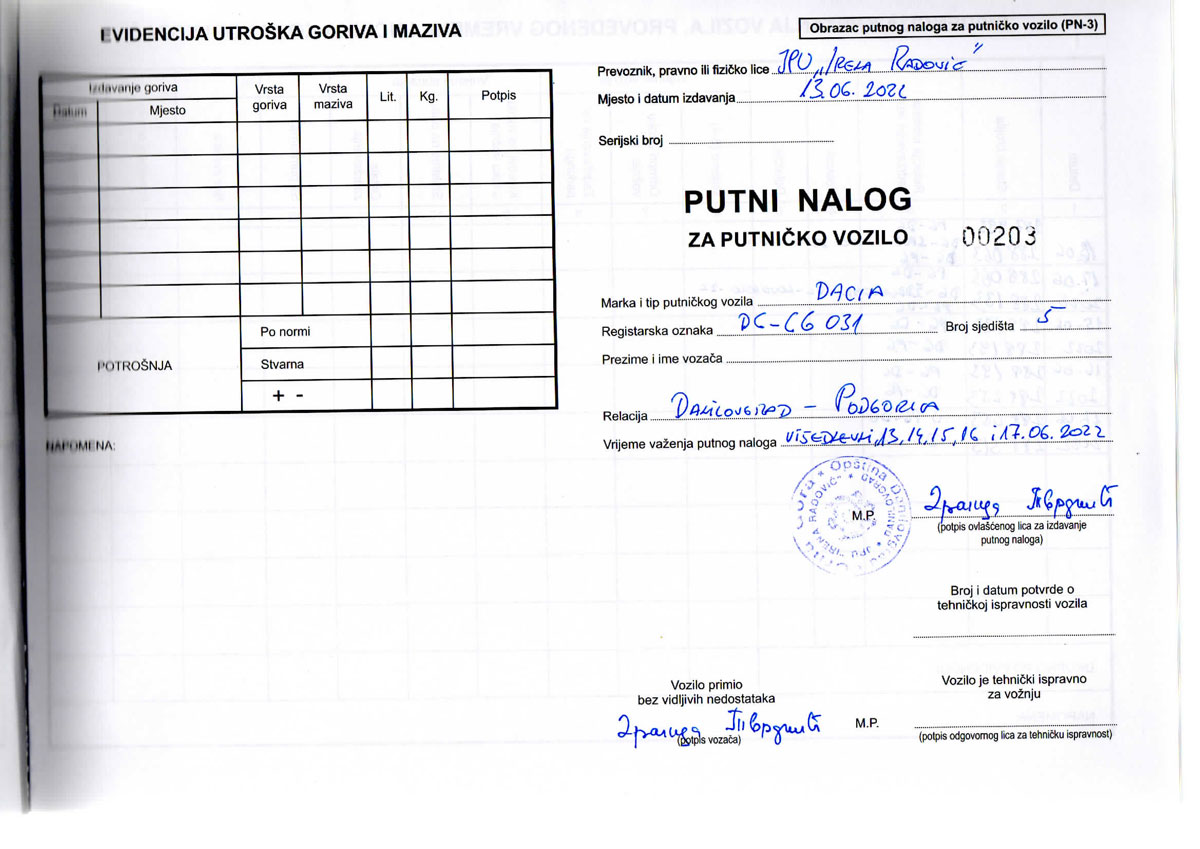 EVIDENCIJA UTROŠKA GORIVA I MAZIVA
Izdavanje goriva
Datum
Mjesto
Vrsta goriva
Vrsta maziva
Lit.
Kg.
Potpis
POTROŠNJA
Po normi
Stvarna
+ -
NAPOMENA:
Obrazac putnog naloga za putničko vozilo (PN-3)
Prevoznik, pravno ili fizičko lice JPU „Irena Radović"
Mjesto i datum izdavanja 13.06.2022
Serijski broj
PUTNI NALOG
ZA PUTNIČKO VOZILO 00203
Marka i tip putničkog vozila DACIA
Registarska oznaka DG-CG 031 Broj sjedišta 5
Prezime i ime vozača
Relacija DANILOVGRAD - PODGORICA
Vrijeme važenja putnog naloga VIŠEDNEVNI, 13, 14, 15, 16 i 17.06.2022
Opština Danilovgrad
JPU "IRENA RADOVIĆ" DANILOVGRAD
M.P.
(potpis ovlašćenog lica za izdavanje
putnog naloga)
Broj i datum potvrde o
tehničkoj ispravnosti vozila
Vozilo primio
bez vidljivih nedostataka
(potpis vozača)
M.P.
Vozilo je tehnički ispravno
za vožnju
(potpis odgovornog lica za tehničku ispravnost)